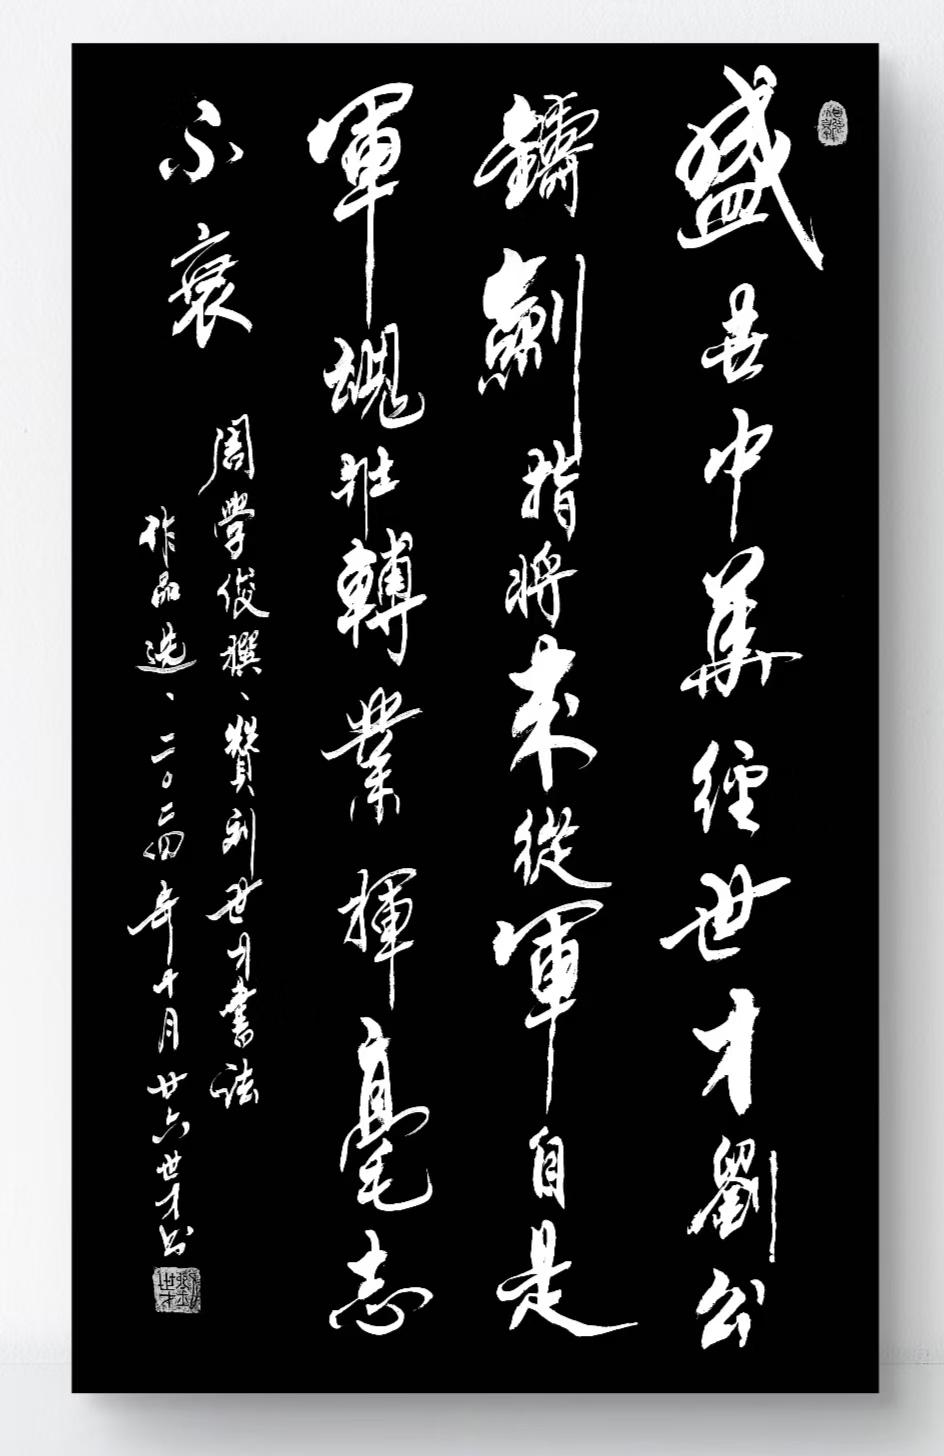 盛世中華經世才劉公
鑄劍指將來從軍自是
軍魂壯轉業揮毫志
不衰
周學俊撰、贊劉世才書法
作品選、二〇二四年十月廿六世才书